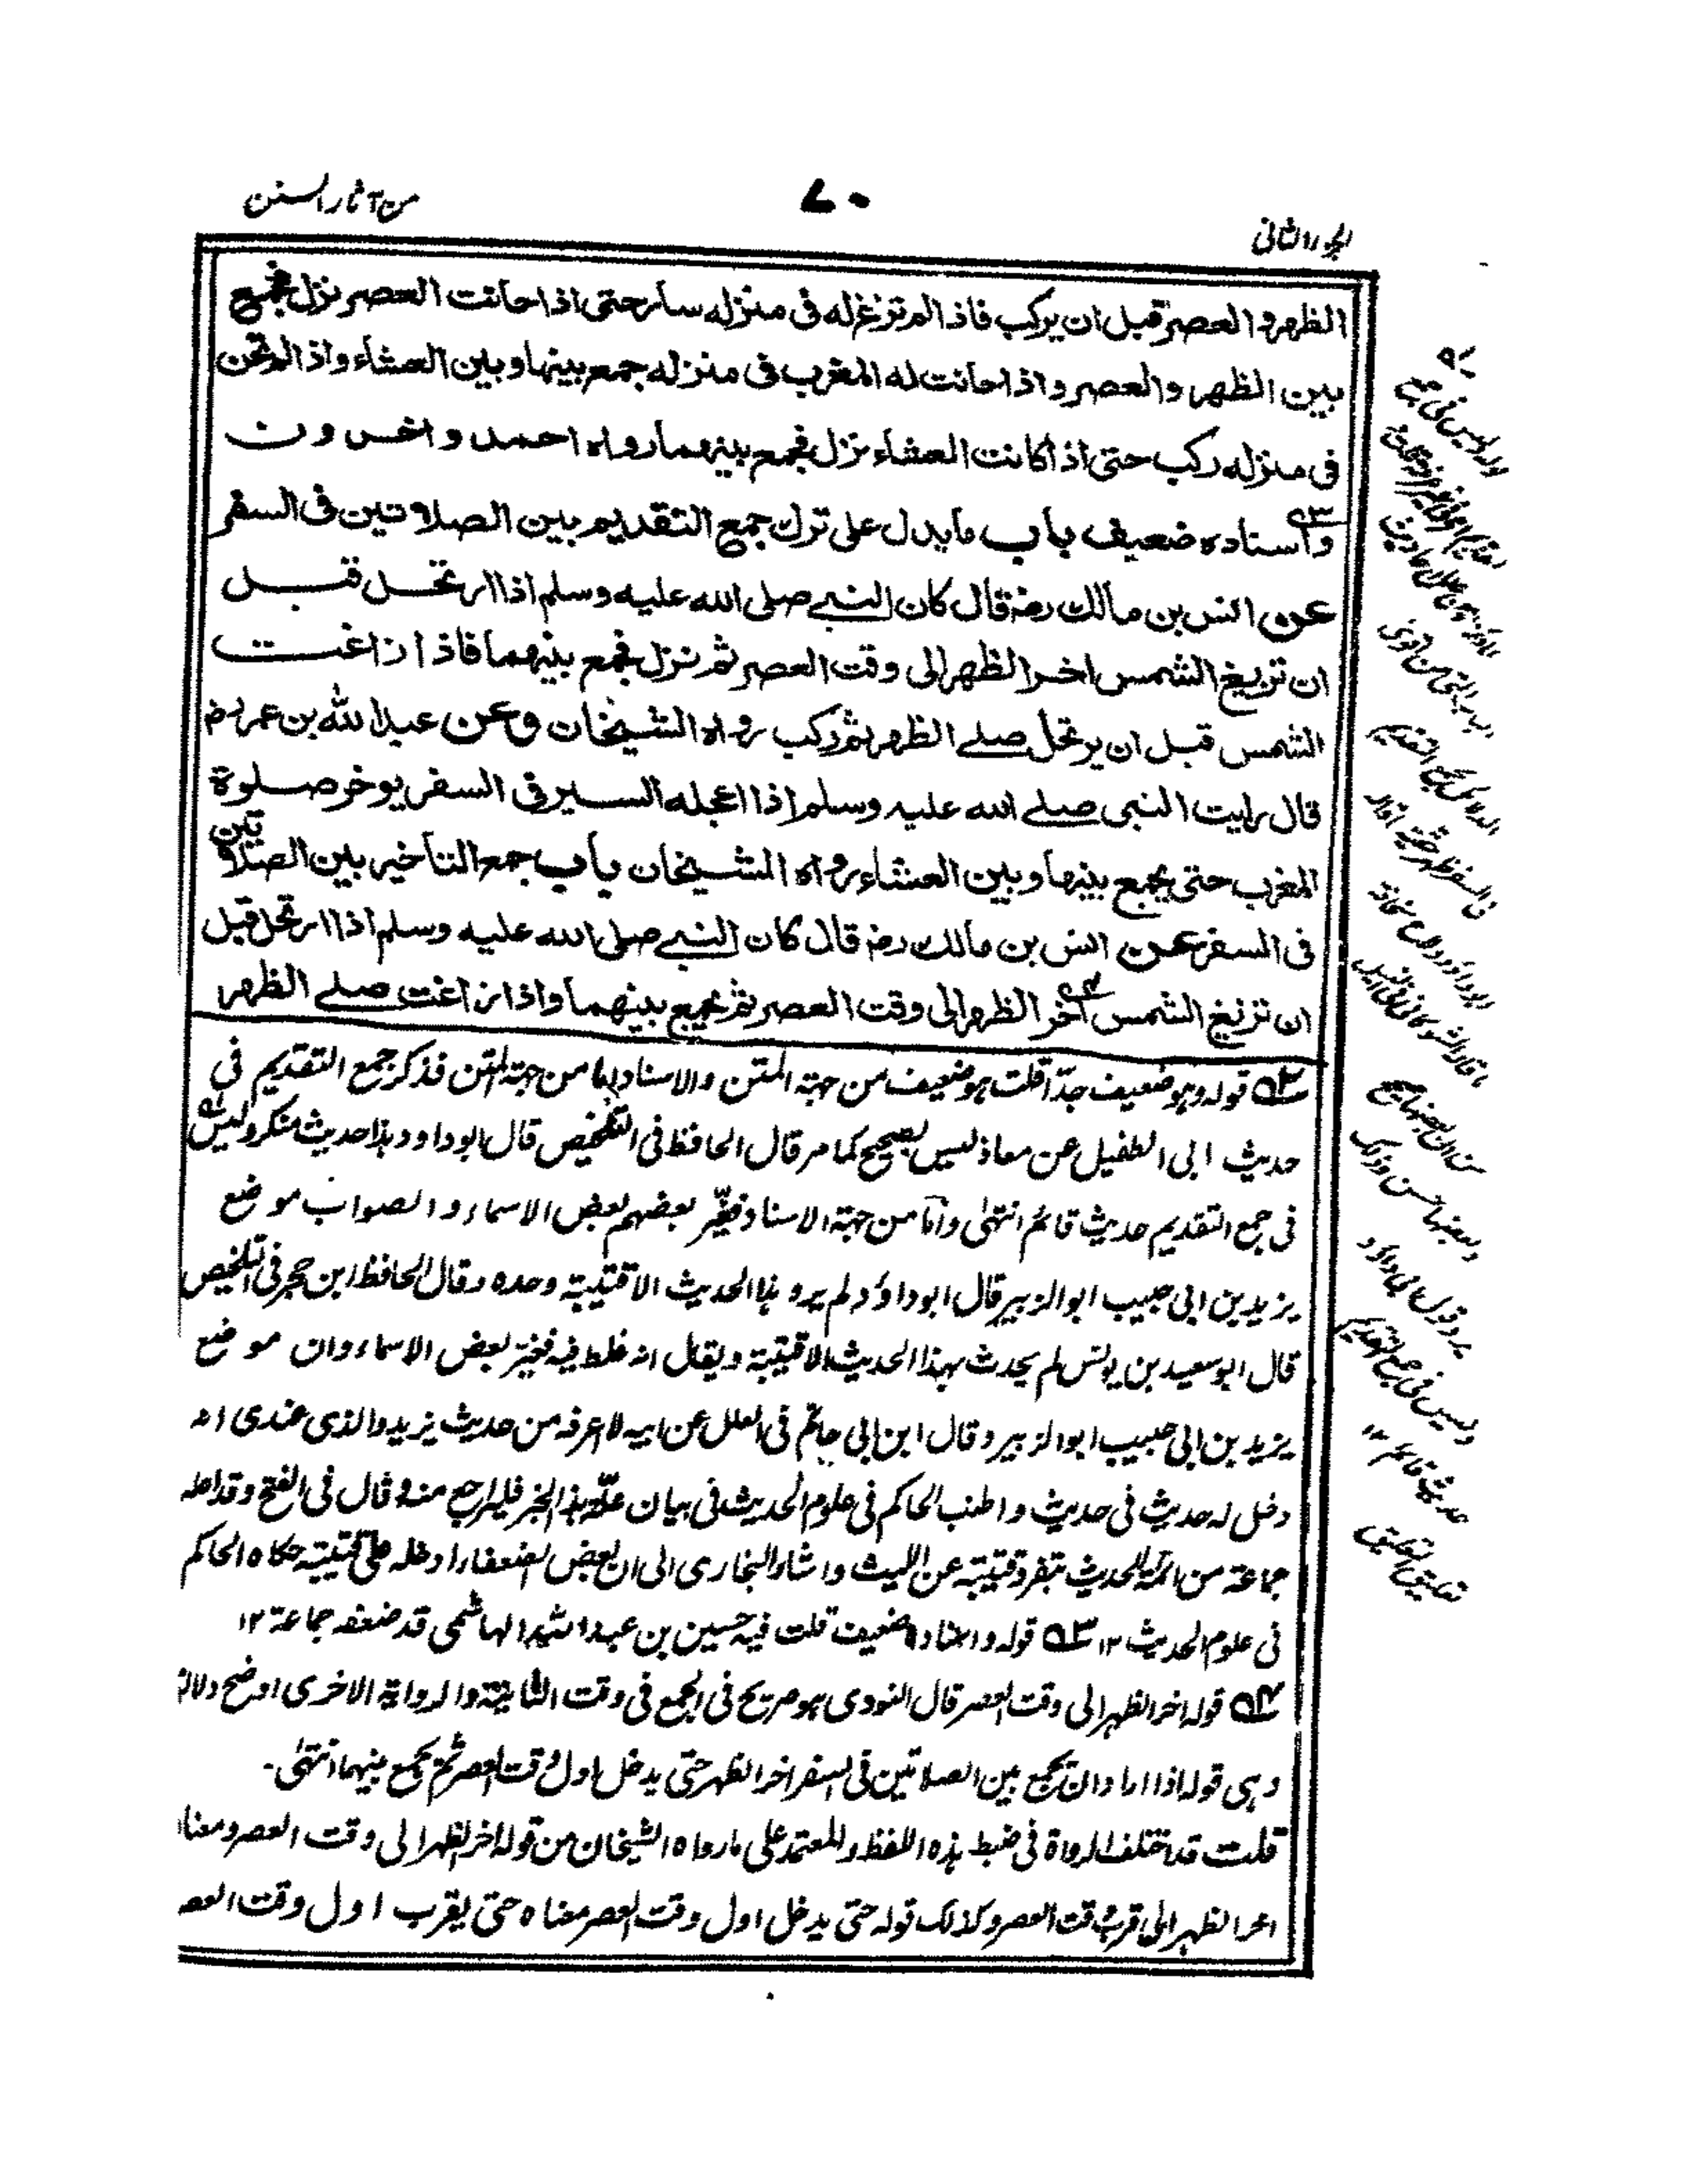 الجزء الثانى
٧٠
من آثار السنن
الظهر والعصر قبل ان يركب فاذا لم تزغ له فى منزله سار حتى اذا حانت العصر نزل فجمع
بين الظهر والعصر واذا حانت له المغرب فى منزله جمع بينها وبين العشاء واذا لم تحن
فى منزله ركب حتى اذا كانت العشاء نزل فجمع بينهما رواه احمد واخرون
واسناده ضعيف باب ما يدل على ترك جمع التقديم بين الصلاتين فى السفر
عن انس بن مالك رضـ قال كان النبى صلى الله عليه وسلم اذا ارتحل قبل
ان تزيغ الشمس اخر الظهر الى وقت العصر ثم نزل فجمع بينهما فاذا زاغت
الشمس قبل ان يرتحل صلے الظهر ثم ركب رواه الشيخان وعن عبد الله بن عمر رضـ
قال رايت النبى صلے الله عليه وسلم اذا اعجله السير فى السفر يوخر صلوة
المغرب حتى يجمع بينها وبين العشاء رواه الشيخان باب جمع التأخير بين الصلاتين
فى السفر عن انس بن مالك رضـ قال كان النبى صلى الله عليه وسلم اذا ارتحل قبل
ان تزيغ الشمس اخر الظهر الى وقت العصر ثم يجمع بينهما واذا زاغت صلے الظهر
٢ قوله وهو ضعيف جدّا قلت هو ضعيف من جهة المتن والاسناد اما من جهة المتن فذكر جمع التقديم فى
حديث ابى الطفيل عن معاذ ليس بصحيح كما مر قال الحافظ فى التلخيص قال ابو داود هذا حديث منكر وليس
فى جمع التقديم حديث قائم انتهى وأمّا من جهة الاسناد فغيّر بعضهم بعض الاسماء والصواب موضع
يزيد بن ابى حبيب ابو الزبير قال ابو داؤد لم يرو هذا الحديث الا قتيبة وحده وقال الحافظ ابن حجر فى التلخيص
قال ابو سعيد بن يونس لم يحدث بهذا الحديث الا قتيبة ويقال انه غلط فيه فغير بعض الاسماء وان موضع
يزيد بن ابى حبيب ابو الزبير وقال ابن ابى حاتم فى العلل عن ابيه لا اعرفه من حديث يزيد والذى عندى انه
دخل له حديث فى حديث واطنب الحاكم فى علوم الحديث فى بيان علّة هذا الخبر فليراجع منه وقال فى الفتح وقد اعله
جماعة من ائمة الحديث بتفرد قتيبة عن الليث واشار البخارى الى ان بعض الضعفاء ادخله على قتيبة حكاه الحاكم
فى علوم الحديث ١٢ ٣ قوله واسناده ضعيف قلت فيه حسين بن عبد الله الهاشمى قد ضعفه جماعة ١٢
٤ قوله اخر الظهر الى وقت العصر قال النووى هو صريح فى الجمع فى وقت الثانية والرواية الاخرى اوضح دلالة
وهى قوله اذا اراد ان يجمع بين الصلاتين فى السفر اخر الظهر حتى يدخل اول وقت العصر ثم يجمع بينهما انتهى۔
قلت قد اختلف الرواة فى ضبط هذه اللفظ والمعتمد على مارواه الشيخان من قوله اخر الظهر الى وقت العصر ومعنا
اخر الظهر الى قرب وقت العصر وكذلك قوله حتى يدخل اول وقت العصر معناه حتى يقرب اول وقت العصـ
قوله وليس فى جمع
فى السفر
من ان بعضها صحيح
وبعضها حسن وذلك
يرد قول ابى داؤد
وليس فى جمع التقديم
حديث قائم ١٢
تعليق التعليق